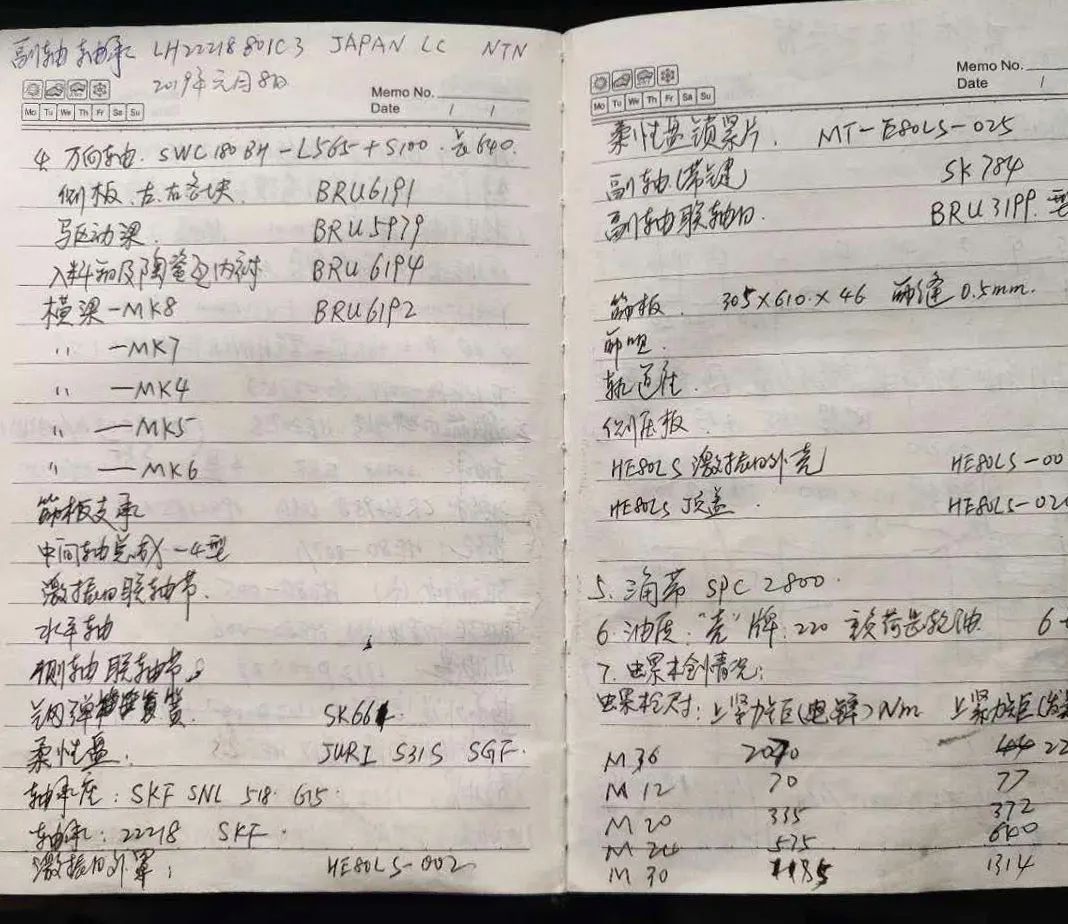 副轴轴承 LH22218 801C3 JAPAN LC NTN
2019年元月8日
Memo No.
Date / /
Mo Tu We Th Fr Sa Su
4. 万向轴. SWC180BH-L565+S100. 长640.
侧板. 左.右各块 BRU6191
驱动梁. BRU5979
入料箱及陶瓷内衬 BRU6194
横梁-MK8 BRU6192
〃 -MK7
〃 -MK4
〃 -MK5
〃 -MK6
筛板支承
中间轴总成-4型
激振器联轴节.
水平轴
侧轴联轴节
钢弹簧 SK661
柔性盘. JURI S31S SGF.
轴承座: SKF SNL 518. 615.
轴承: 22218 SKF.
激振器外罩: HE80LS-002
Memo No.
Date /
Mo Tu We Th Fr Sa Su
柔性盘锁紧片. MT-E80LS-025
副轴(带键) SK784
副轴联轴器. BRU3199. 型
筛板. 305×610×46 筛缝0.5mm.
轨道柱.
侧压板.
HE80LS 激振器外壳 HE80LS-00
HE80LS 顶盖. HE80LS-020
5. 三角带 SPC2800.
6. 油质: "壳"牌: 220 重负荷齿轮油 6-
7. 螺栓情况:
螺栓尺寸: 上紧力矩(电镀)Nm 上紧力矩(发
M36 2020 22
M12 70 77
M20 335 372
M24 575 640
M30 1185 1314